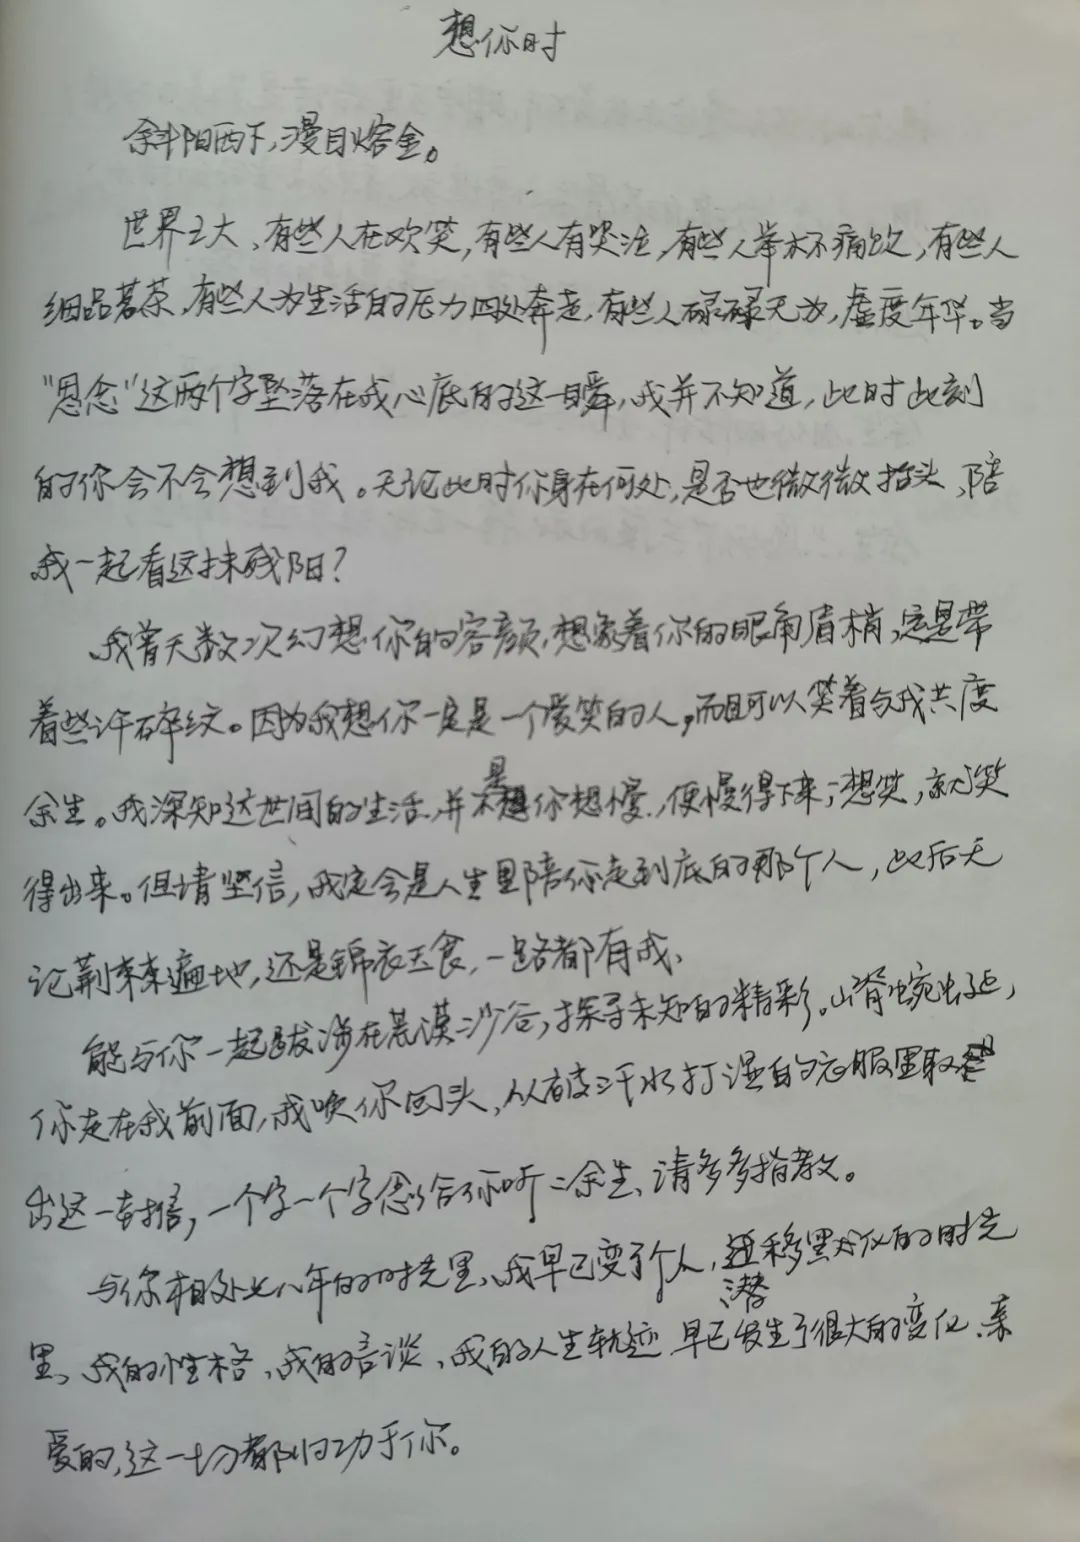 想你时
斜阳西下,漫目熔金。
世界之大、有些人在欢笑,有些人有哭泣,有些人举杯痛饮,有些人
细品茗茶,有些人为生活的压力四处奔走,有些人碌碌无为,虚度年华。当
"思念"这两个字坠落在我心底的这一瞬,我并不知道,此时此刻
的你会不会想到我。无论此时你身在何处,是否也微微抬头、陪
我一起看这抹残阳?
我曾无数次幻想你的容颜,想象着你的眼角眉梢,定是带
着些许碎纹。因为我想你一定是一个爱笑的人,而且可以笑着与我共度
余生。我深知这世间的生活,并不是你想慢,便慢得下来;想笑,就笑
得出来。但请坚信,我定会是人生里陪你走到底的那个人,此后无
论荆棘遍地,还是锦衣玉食,一路都有我、
能与你一起跋涉在荒漠沙谷,探寻未知的精彩。山脊蜿蜒,
你走在我前面,我唤你回头,从被汗水打湿的衣服里取
出这一封信,一个字一个字念给你听:余生、请多多指教。
与你相处七八年的时光里、我早已变了个人,潜移默化的时光
里、我的性格、我的言谈、我的人生轨迹早已发生了很大的变化、亲
爱的,这一切都归功于你。